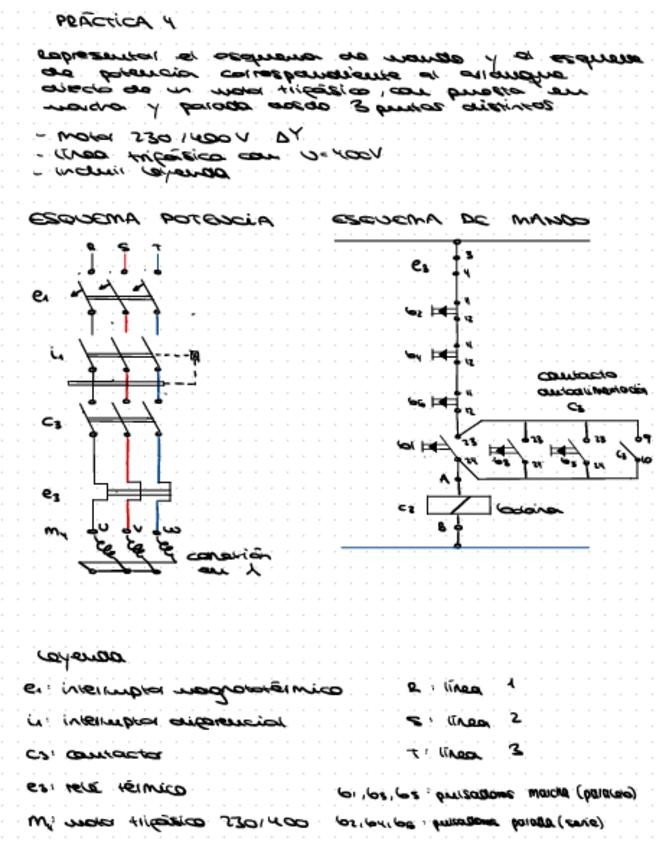 PRÁCTICA 4
Representar el esquema de mando y el esquema
de potencia correspondiente al arranque
directo de un motor trifásico, con puesta en
marcha y parada desde 3 puntos distintos
- motor 230/400V ΔY
- línea trifásica con U=400V
- incluir leyenda
ESQUEMA POTENCIA
R S T
e1
i1
C3
e3
M4 U V W
conexión
en λ
ESQUEMA DE MANDO
e3 3
4
b2 11
12
b4 11
12
b6 11
12
contacto
autoalimentación
C3
b1 23
24
b3 23
24
b5 23
24
C3 9
10
A
C3 bobina
B
Leyenda
e1: interruptor magnetotérmico
i1: interruptor diferencial
C3: contactor
e3: relé térmico
M4: motor trifásico 230/400
R: línea 1
S: línea 2
T: línea 3
b1, b3, b5: pulsadores marcha (paralelo)
b2, b4, b6: pulsadores parada (serie)